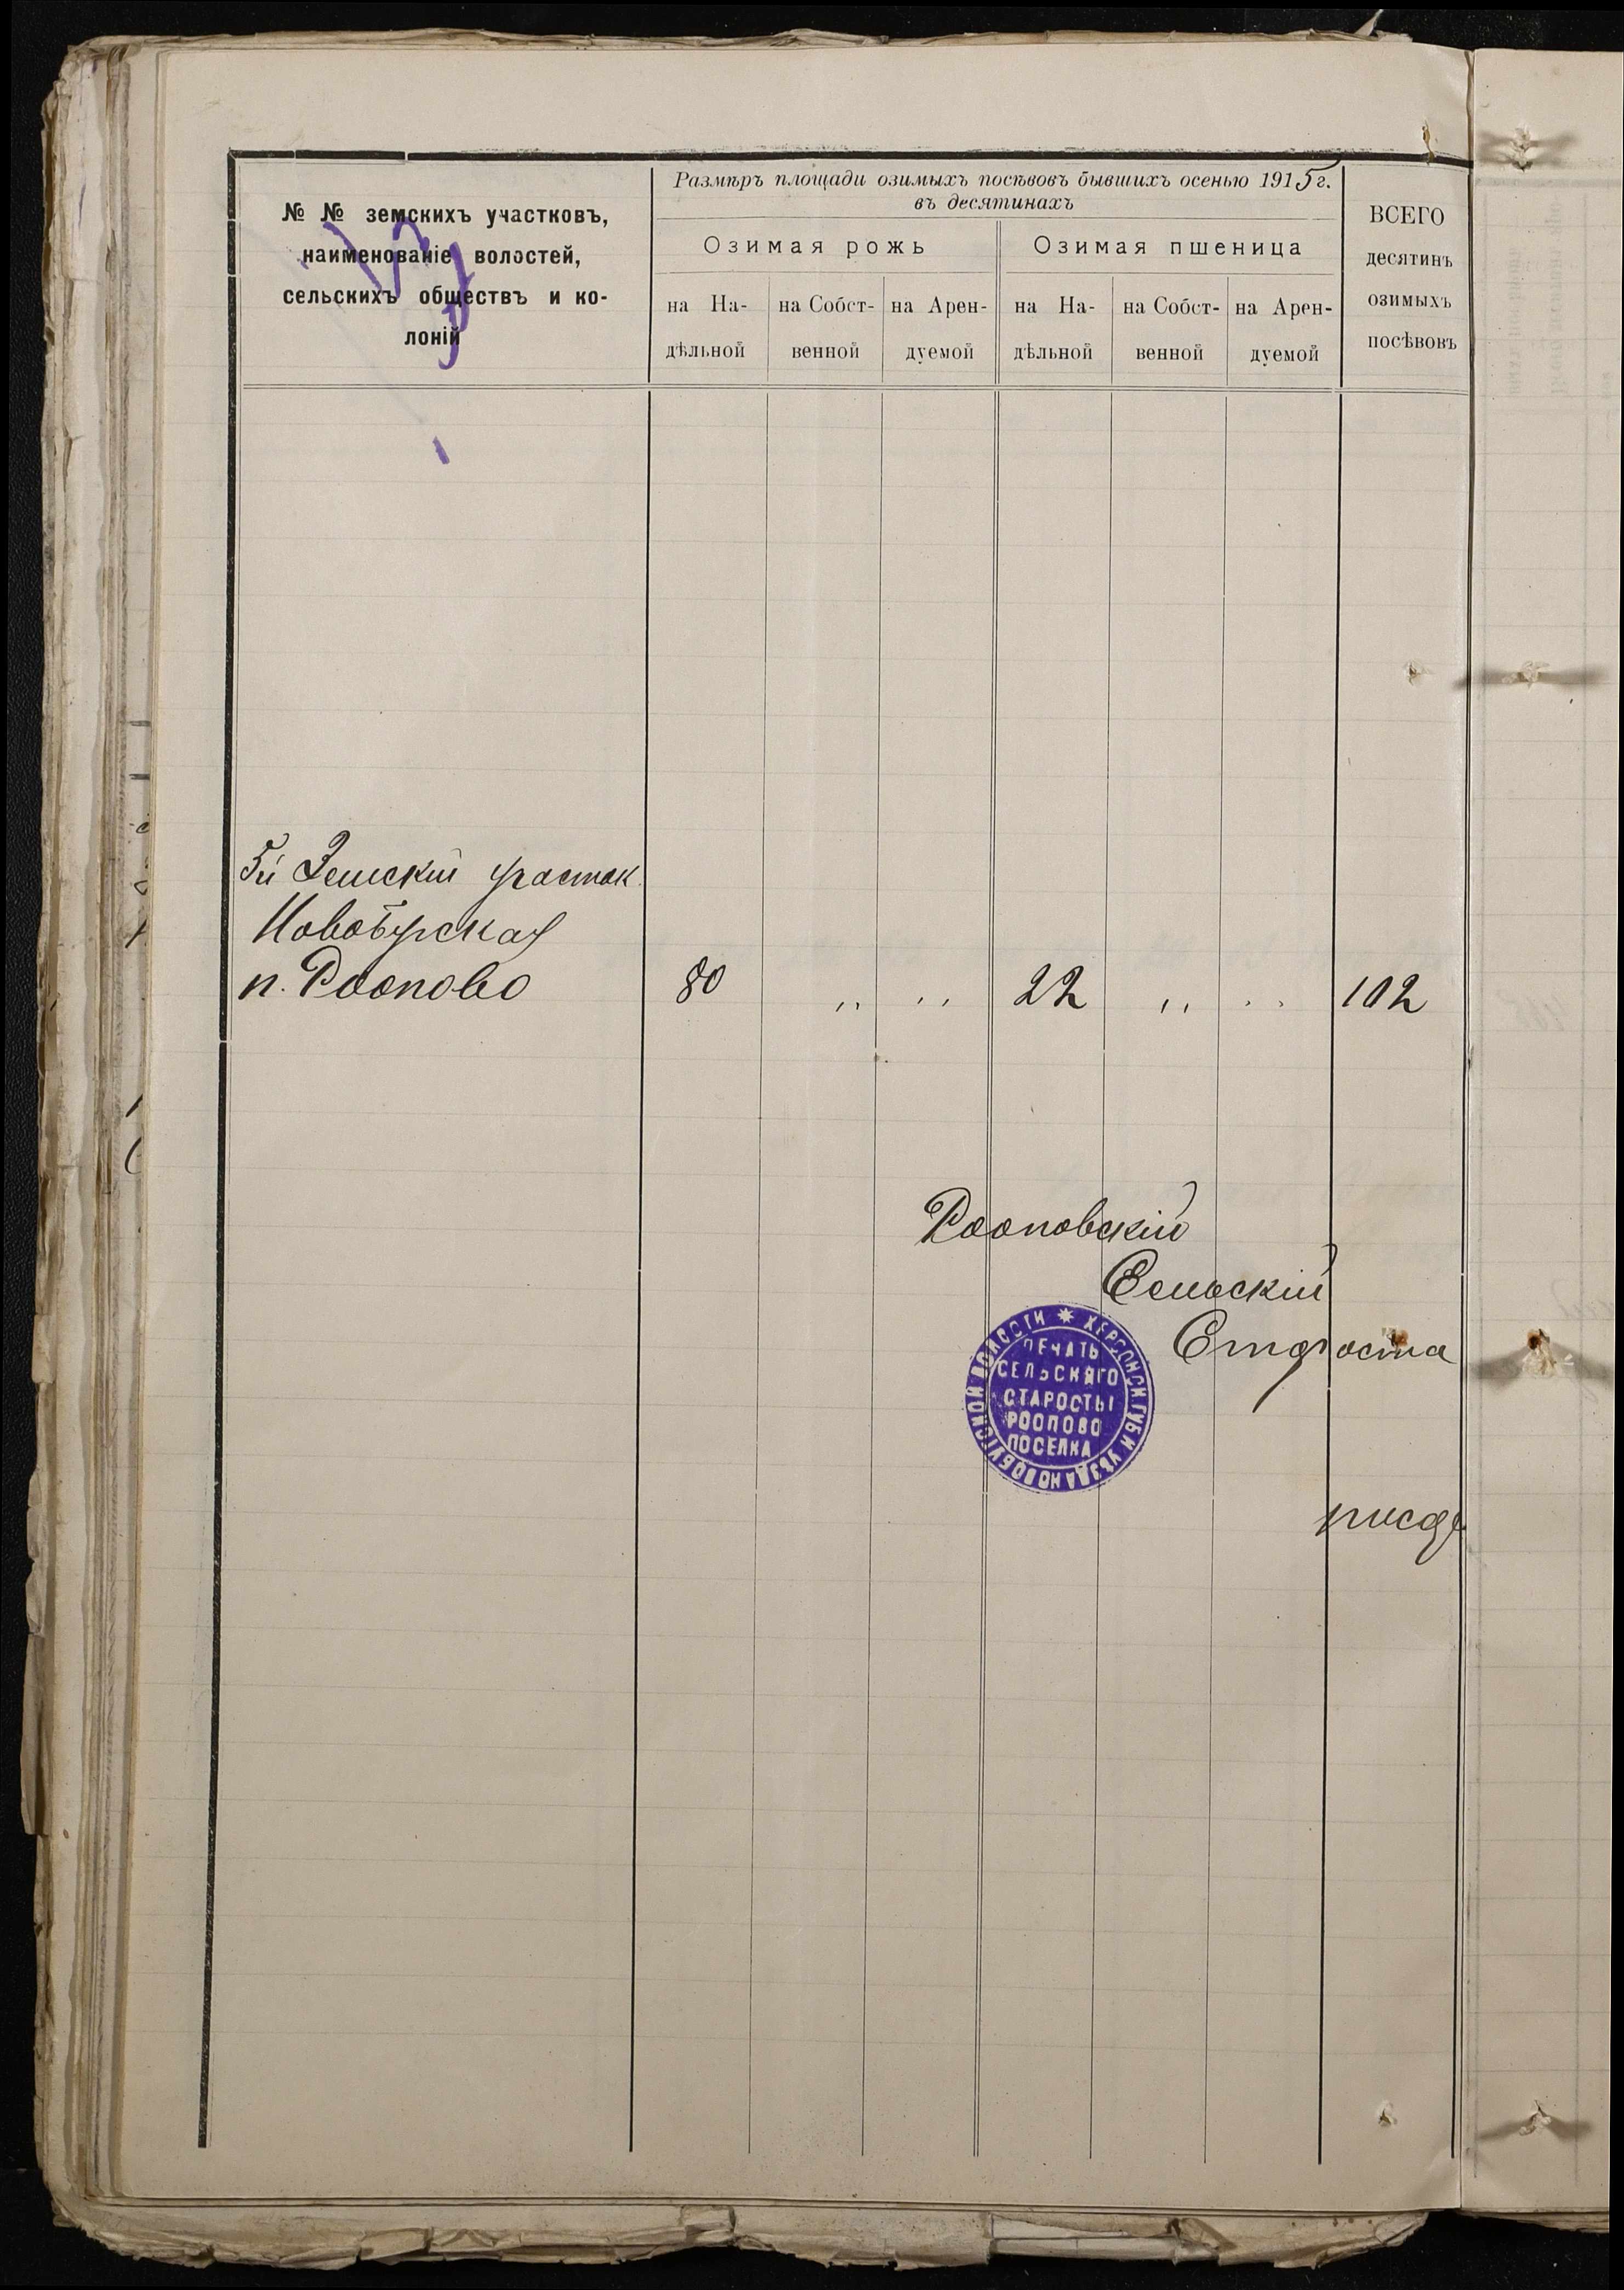 № № земскихъ участковъ,
наименованіе волостей,
сельскихъ обществъ и ко-
лоній
Размѣръ площади озимыхъ посѣвовъ бывшихъ осенью 1915 г.
въ десятинахъ
Озимая рожь
Озимая пшеница
на На-
дѣльной
на Собст-
венной
на Арен-
дуемой
на На-
дѣльной
на Собст-
венной
на Арен-
дуемой
ВСЕГО
десятинъ
озимыхъ
посѣвовъ
5й Земскій участок
Новобугская
п. Роопово 80 „ „ 22 „ „ 102
Рооповскій
Сельскій
Староста
ПЕЧАТЬ
СЕЛЬСКАГО
СТАРОСТЫ
РООПОВО
ПОСЕЛКА
ХЕРСОНСК. ГУБ. И УѢЗДА НОВОБУГСКОЙ ВОЛОСТИ
писарь